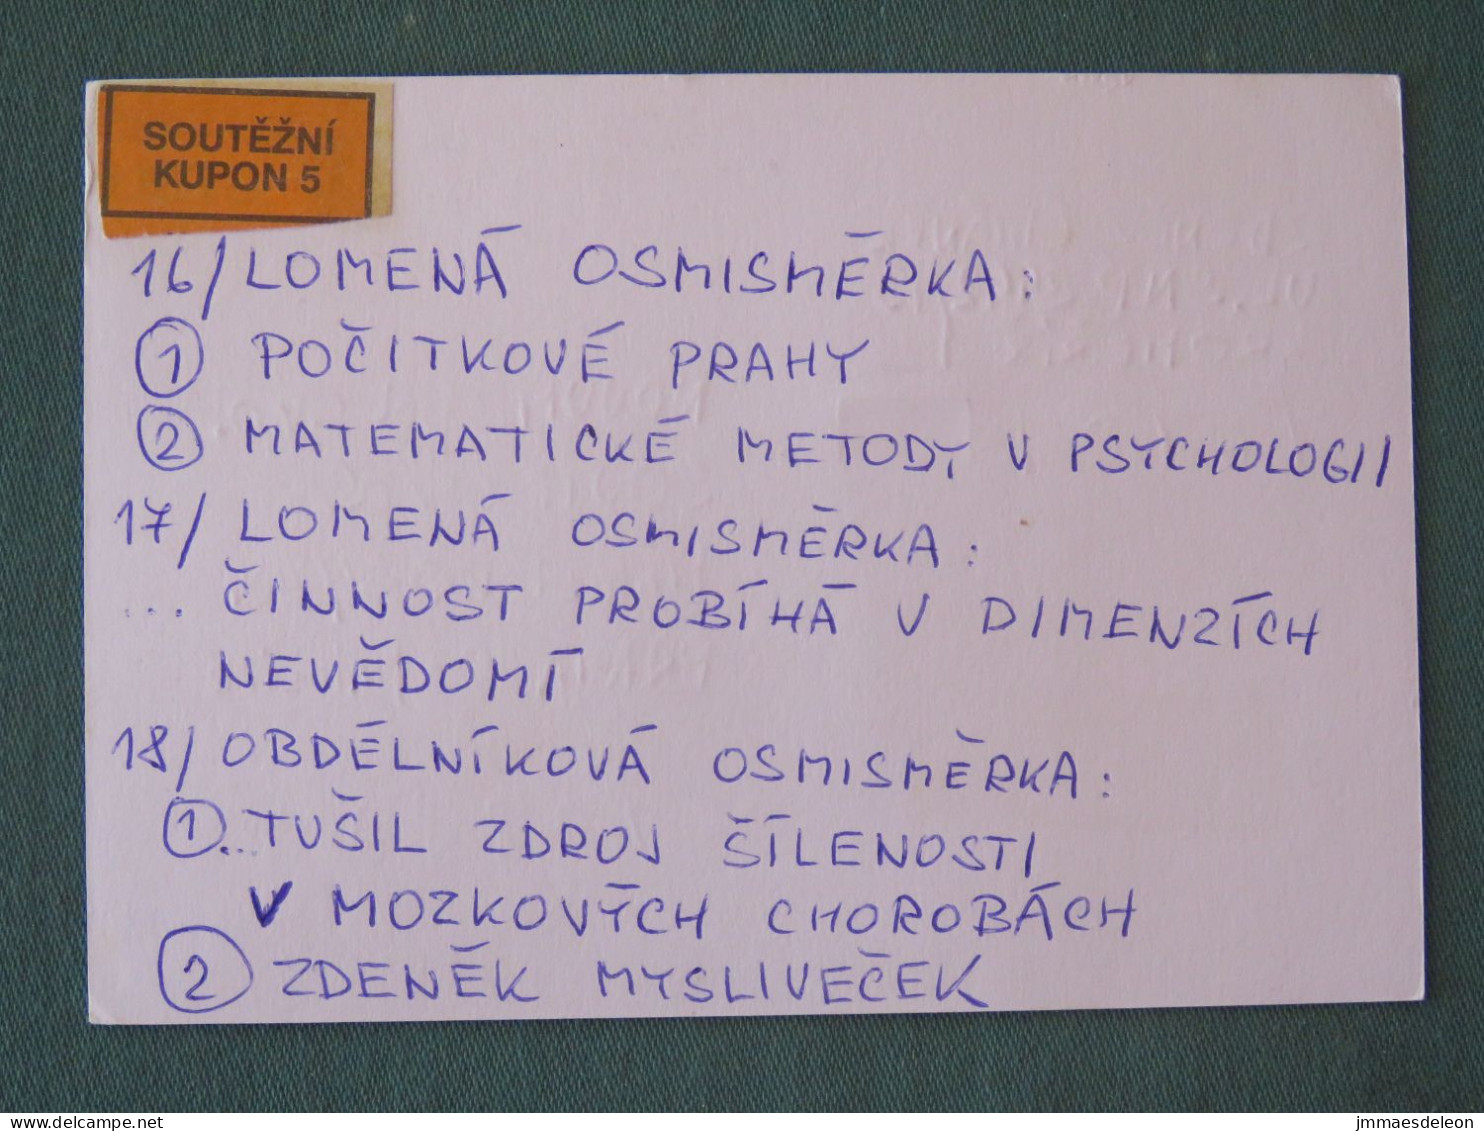 SOUTĚŽNÍ
KUPON 5
16/ LOMENÁ OSMISMĚRKA:
1 POČITKOVÉ PRAHY
2 MATEMATICKÉ METODY V PSYCHOLOGII
17/ LOMENÁ OSMISMĚRKA:
... ČINNOST PROBÍHÁ V DIMENZÍCH
NEVĚDOMÍ
18/ OBDÉLNÍKOVÁ OSMISMĚRKA:
1 ... TUŠIL ZDROJ ŠÍLENOSTI
V MOZKOVÝCH CHOROBÁCH
2 ZDENĚK MYSLIVEČEK
delcampe.net
jmmaesdeleon